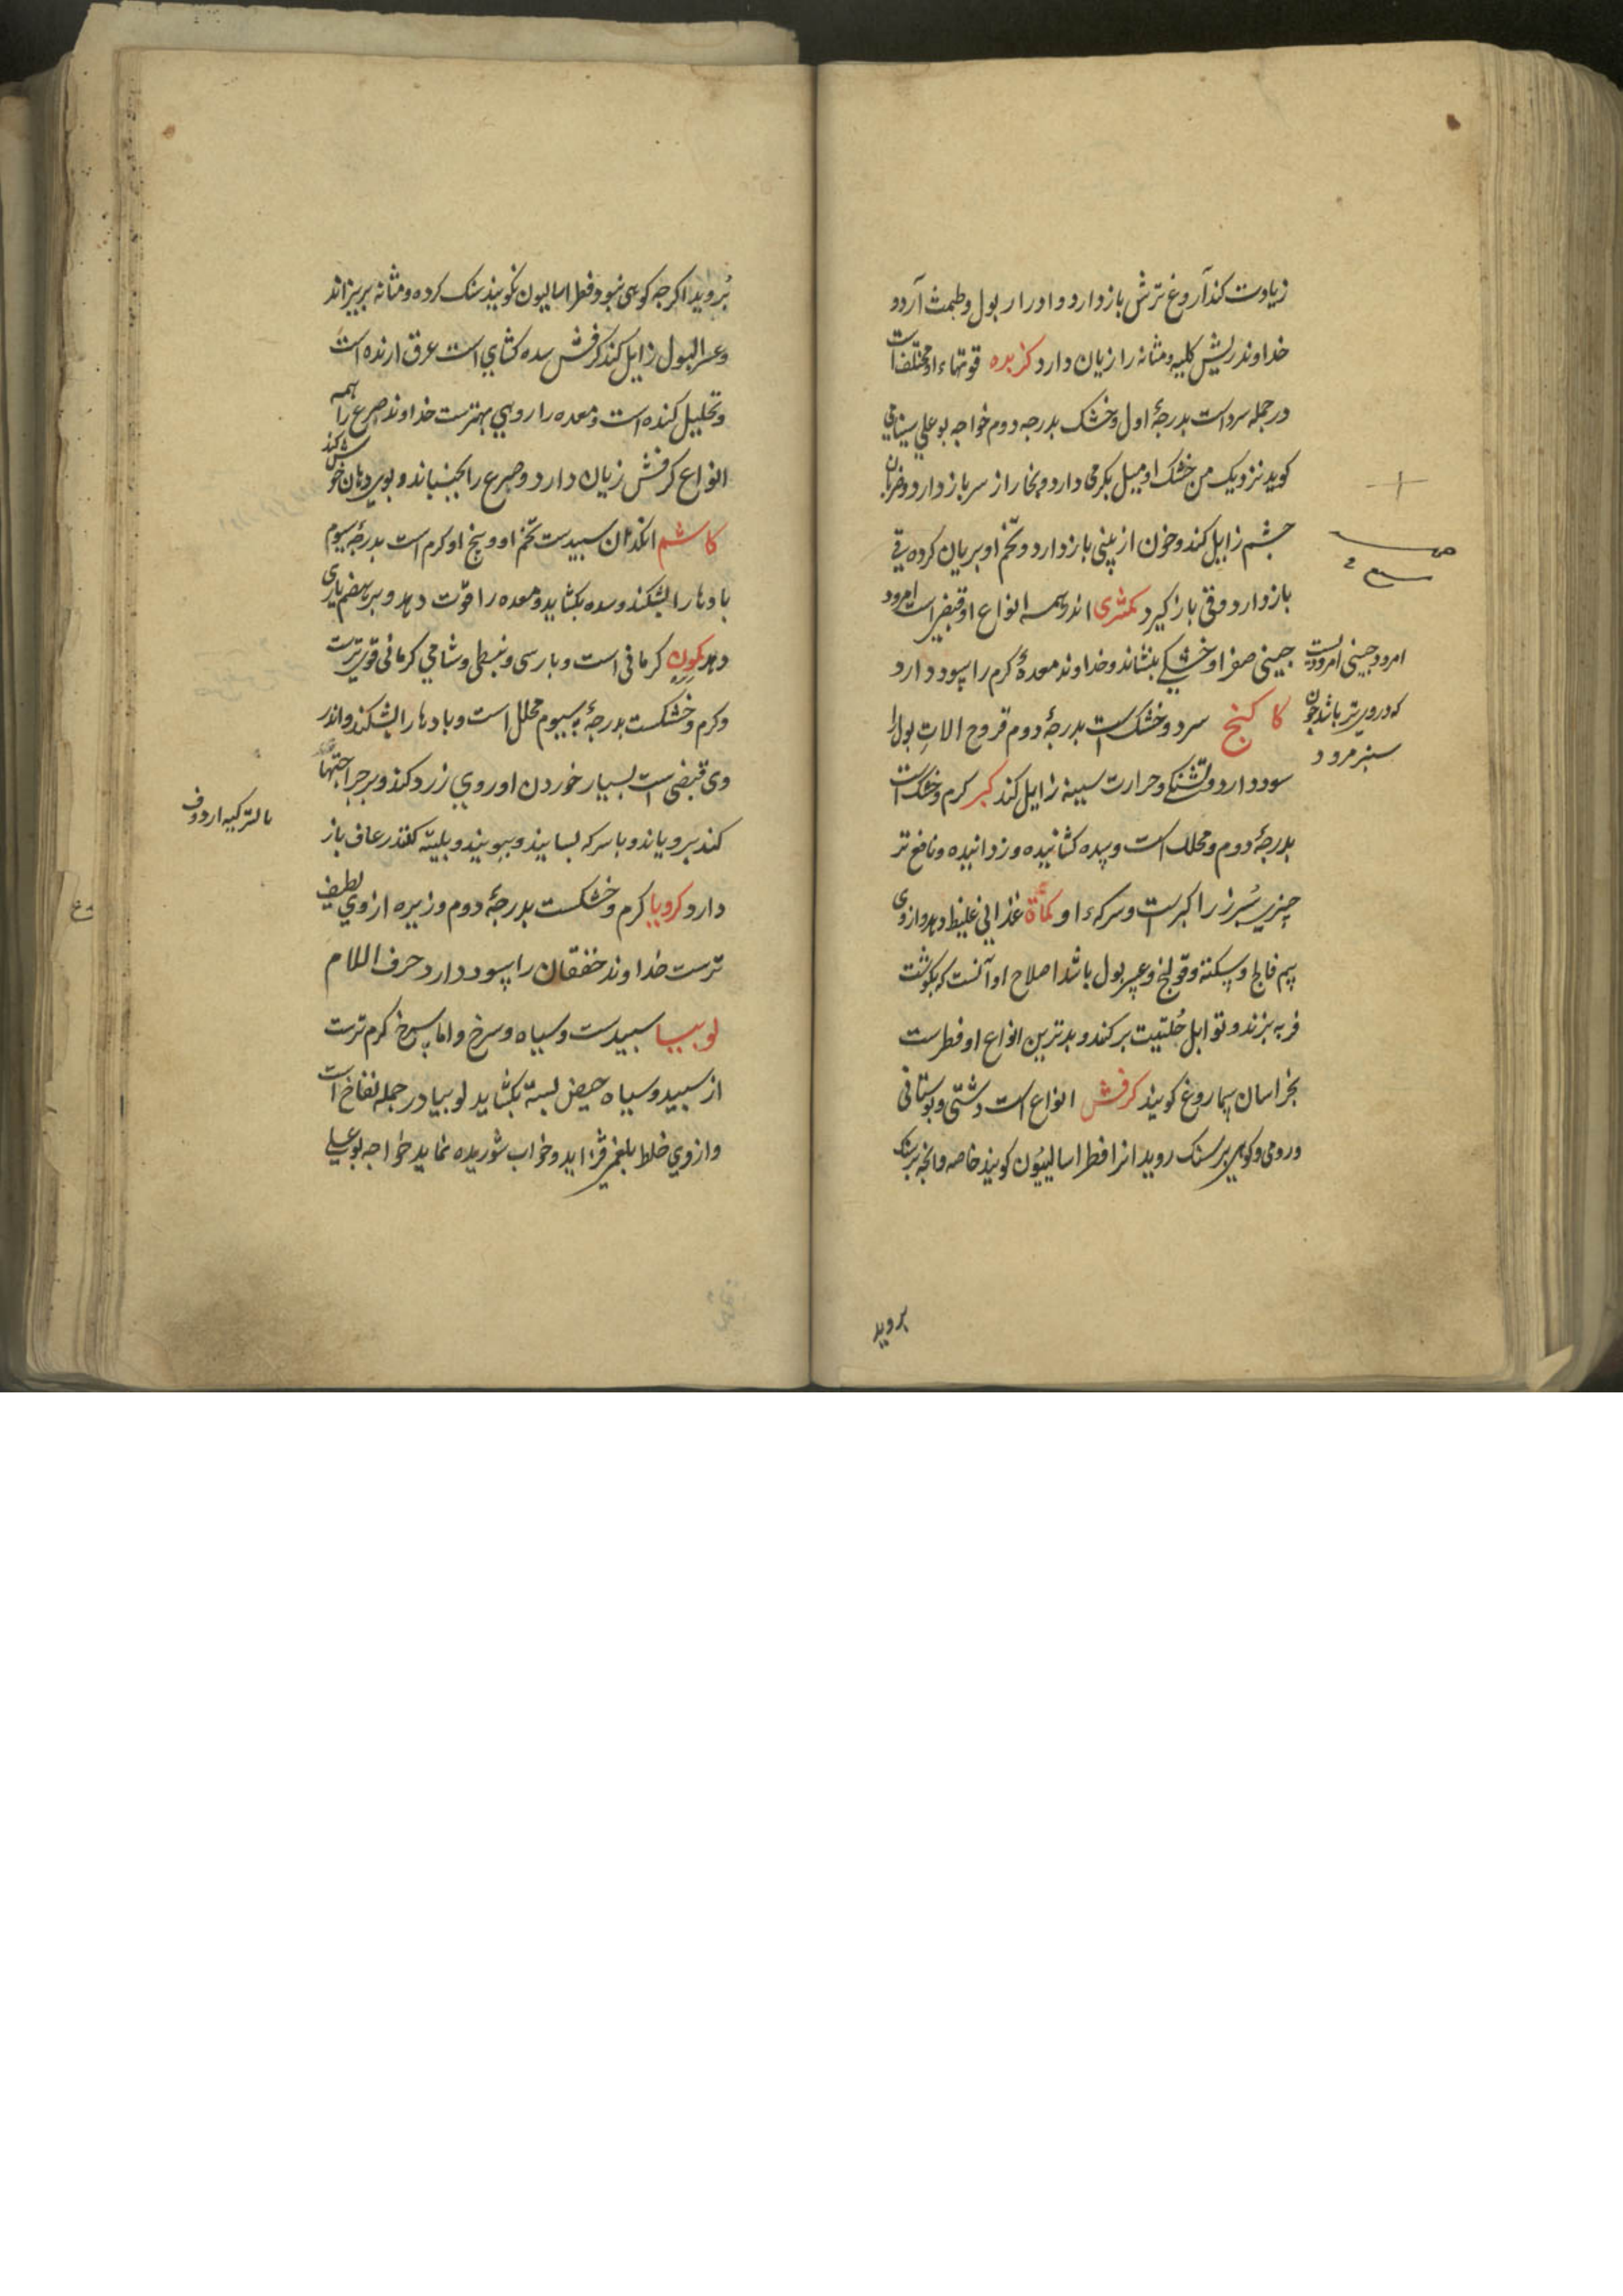 زیادت کند آروغ ترش باز دارد و ادرار بول و طمث آرد و
خداوند ریش کلیه و مثانه را زیان دارد کزبره قوتهاء او مختلف است
در جمله سرد است بدرجۀ اول و خشک بدرجه دوم خواجه بوعلی سینا می
کوید نزدیک من خشک او میل بکرمی دارد و بخار از سر باز دارد و ضربان
چشم زایل کند و خون از بینی باز دارد و تخم او بریان کرده قی
باز دارد و قی باز کیرد کمثری اندر همه انواع او قبض است امرود
چینی صفرا و خشکی بنشاند و خداوند معدۀ کرم را سود دارد
امرود چینی امرودیست
که درو پرتر باشد چون
سبز مرود
کاکنج سرد و خشک است بدرجۀ دوم قروح الات بول را
سود دارد و تشنکی و حرارت سینه زایل کند کبر کرم و خشک است
بدرجۀ دوم و محلل است و سده کشاینده و زداینده و نافع تر
چیزی سپرز را کبر است و سرکهء او کمأة غذایی غلیظ دهد و از وی
بیم فالج و سکته و قولنج و عسر بول باشد اصلاح او آنست که بکوشت
فربه بزند و توابل حلتیت برکند و بدترین انواع او فطرست
بخراسان سماروغ کویند کرفش انواع است دشتی و بوستانی
و رومی و کوهی بر سنک روید انرا فطراسالیون کویند خاصه و انچه بر سنک
بروید
بروید اکرچه کوهی نبود فطراسالیون نکویند سنک کرده و مثانه بریزاند
و عسر البول زایل کند کرفش سده کشای است عرق ارنده است
و تحلیل کننده است و معده را رومی بهترست خداوند صرع را همه
انواع کرفش زیان دارد و صرع را بجنباند و بوی دهان خوش کند
کاشم انکدان سبیدست تخم او و بیخ او کرم است بدرجۀ سیوم
بادها را بشکند و سده بکشاید و معده را قوت دهد و بر هضم یاری
دهد کمون کرمانی است و بارسی و نبطی و شامی کرمانی قوی ترست
و کرم و خشکست بدرجۀ سیوم محلل است و بادها را بشکند و اندر
وی قبضی است بسیار خوردن او روی زرد کند و بر جراحتها
کند برویاند و با سرکه بسایند و ببویند و بلیته کنند رعاف باز
دارد کرویا کرم و خشکست بدرجۀ دوم و زیره از وی لطیف
ترست خداوند خفقان را سود دارد حرف اللام
لوبیا سبیدست و سیاه و سرخ و اما سرخ کرم ترست
از سبید و سیاه حیض بسته بکشاید لوبیا در جمله نفاخ است
و از وی خلط بلغمی فزاید و خواب شوریده نماید خواجه بوعلی